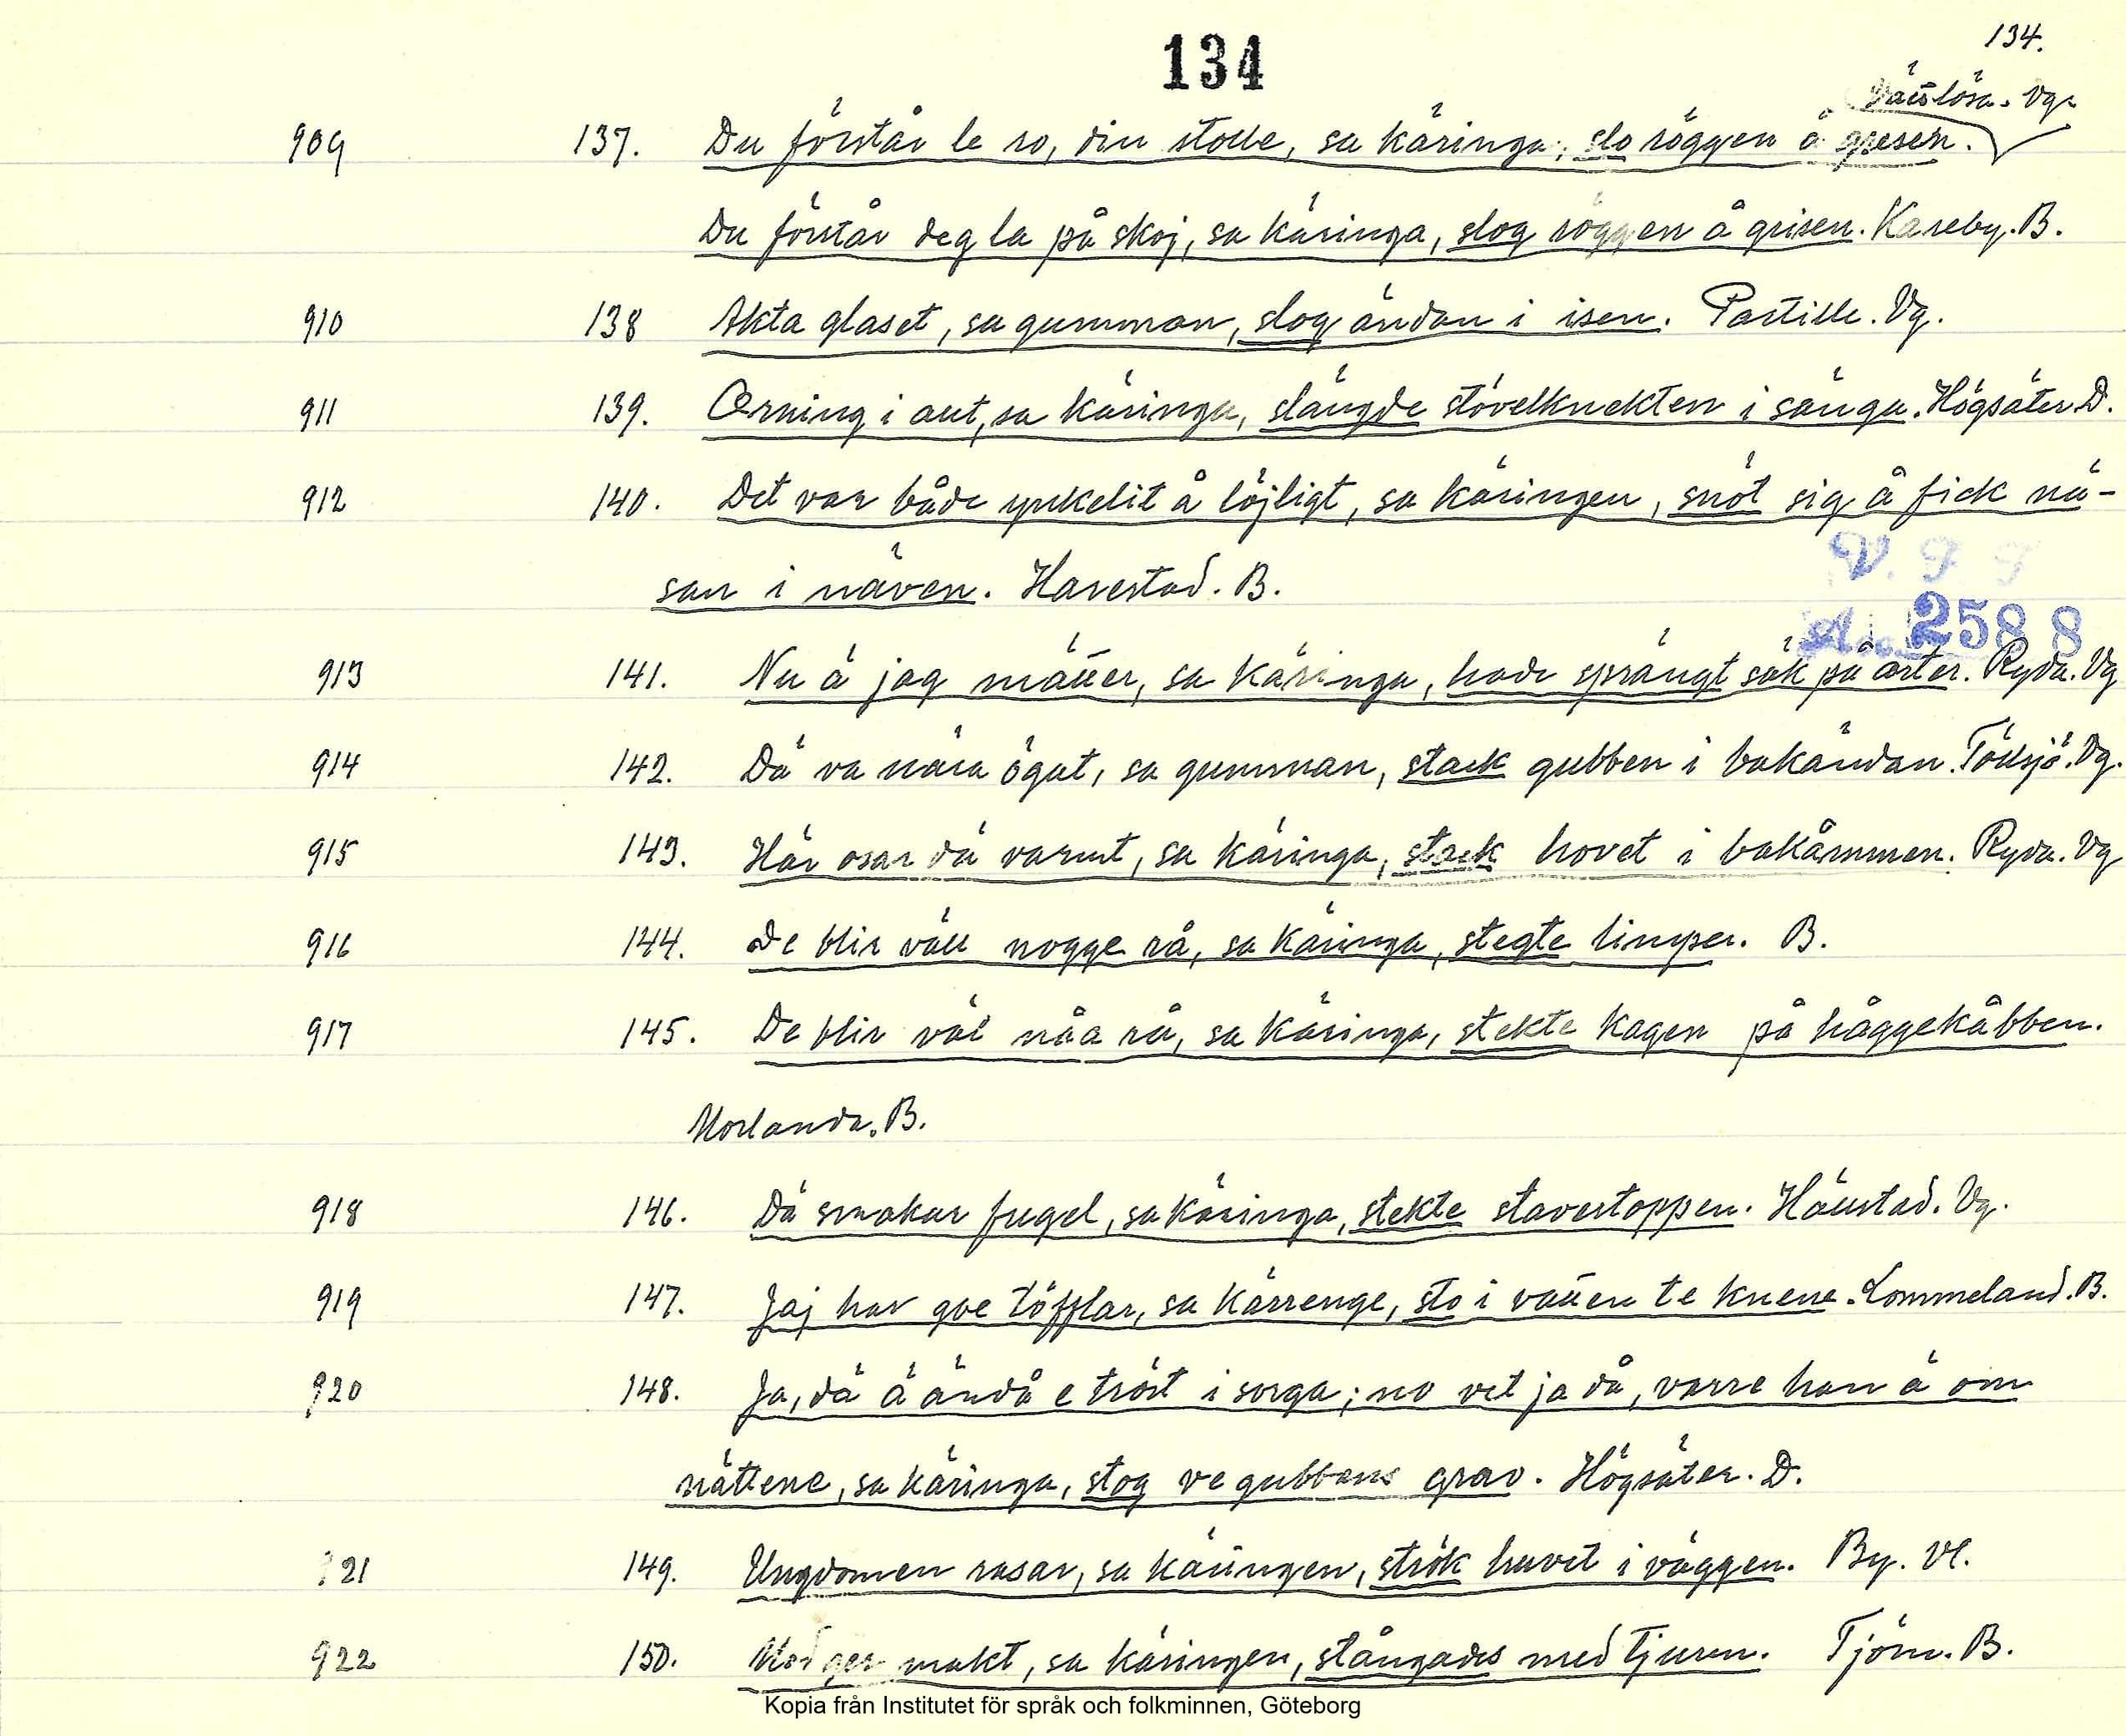 134
134.
Vässlösa. Vg.
909 137. Du förstår le ro, din stolle, sa käringa, slo röggen å gresen.
Du förstår deg la på skoj, sa käringa, slog röggen å grisen. Kareby. B.
910 138 Akta glaset, sa gumman, slog ändan i isen. Partille. Vg.
911 139. Ordning i allt, sa käringa, slängde stövelknekten i sänga. Högsäter D.
912 140. Det var både ynkelit å löjligt, sa käringen, snöt sig å fick nä-
san i näven. Harestad. B.
V. F. F
Acc. 2588
913 141. Nu ä jag mätter, sa käringa, hade sprängt säk på ärter. Ryda. Vg
914 142. Dä va nära ögat, sa gumman, stack gubben i bakändan. Töllsjö. Vg.
915 143. Här osar dä varmt, sa käringa, stack hovet i bakåmmen. Ryda. Vg
916 144. De blir väll nogge rå, sa käringa, stegte limper. B.
917 145. De blir väl nåa rå, sa käringa, stekte kagen på håggekåbben.
Morlanda. B.
918 146. Dä smakar fugel, sa käringa, stekte stavestoppen. Hällstad. Vg.
919 147. Jaj har goe töfflar, sa kärrenge, sto i vatten te knene. Lommeland. B.
920 148. Ja, dä ä ändå e tröst i sorga; no vet ja då, varre han ä om
nättene, sa käringa, stog ve gubbens grav. Högsäter. D.
921 149. Ungdomen rasar, sa käringen, strök huvet i väggen. By. Vl.
922 150. Mod ger makt, sa käringen, stångades med tjuren. Tjörn. B.
Kopia från Institutet för språk och folkminnen, Göteborg